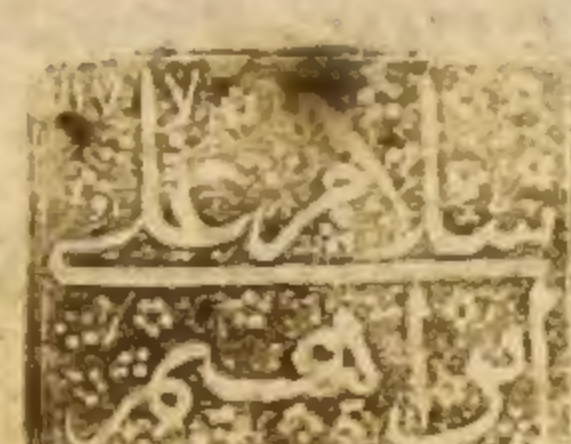 سلام على
ابرهيم